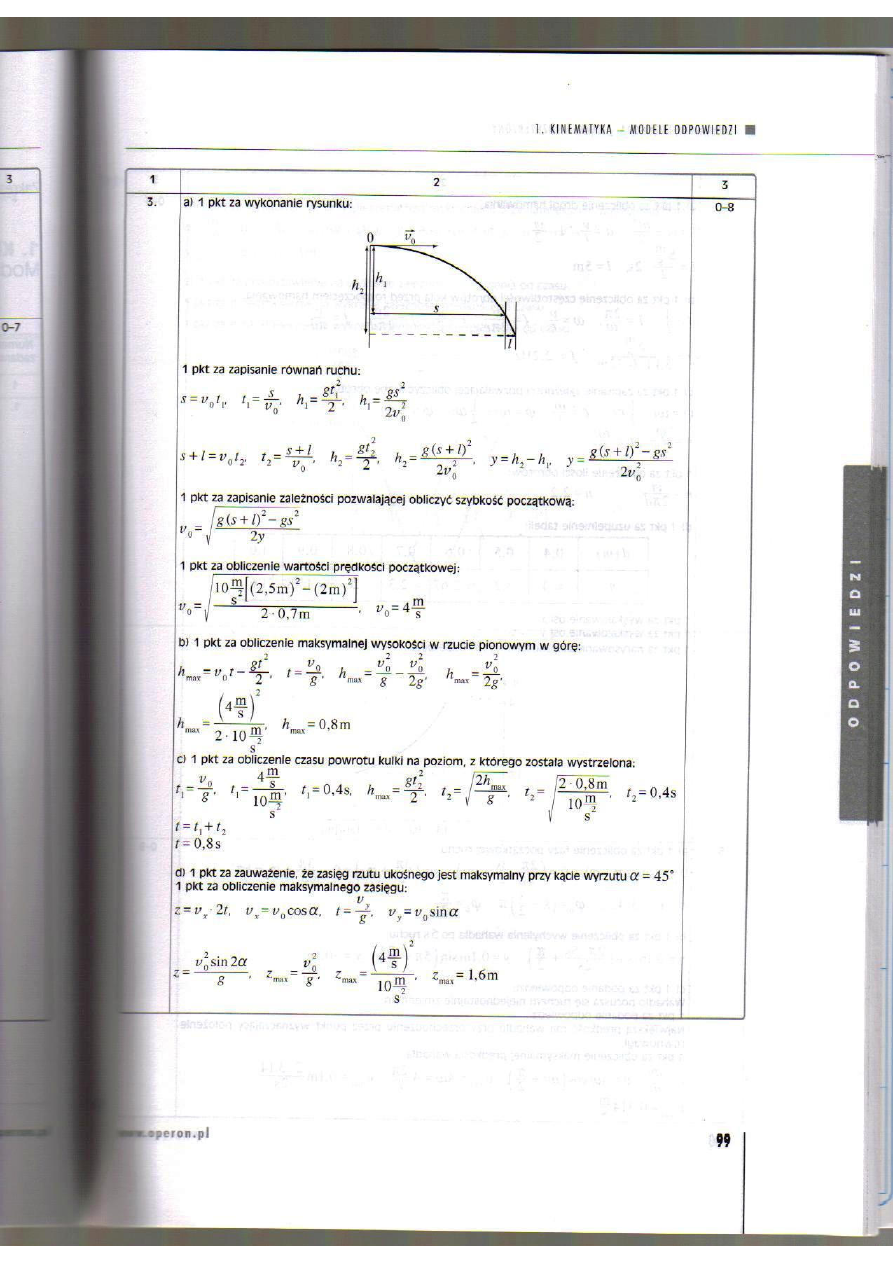 1. KINEMATYKA – MODELE ODPOWIEDZI
3
0–7
1 2 3
3. a) 1 pkt za wykonanie rysunku: 0–8
0 v⃗₀
h₂ h₁
s
l
1 pkt za zapisanie równań ruchu:
s = v₀t₁, t₁ = s/v₀, h₁ = gt₁²/2, h₁ = gs²/2v₀²
s + l = v₀t₂, t₂ = (s + l)/v₀, h₂ = gt₂²/2, h₂ = g(s + l)²/2v₀², y = h₂ – h₁, y = (g(s + l)² – gs²)/2v₀²
1 pkt za zapisanie zależności pozwalającej obliczyć szybkość początkową:
v₀ = √((g(s + l)² – gs²)/2y)
1 pkt za obliczenie wartości prędkości początkowej:
v₀ = √(10 m/s² [(2,5m)² – (2m)²]/(2·0,7m)), v₀ = 4 m/s
b) 1 pkt za obliczenie maksymalnej wysokości w rzucie pionowym w górę:
h_max = v₀t – gt²/2, t = v₀/g, h_max = v₀²/g – v₀²/2g, h_max = v₀²/2g,
h_max = (4 m/s)²/(2·10 m/s²), h_max = 0,8m
c) 1 pkt za obliczenie czasu powrotu kulki na poziom, z którego została wystrzelona:
t₁ = v₀/g, t₁ = (4 m/s)/(10 m/s²), t₁ = 0,4s, h_max = gt₂²/2, t₂ = √(2h_max/g), t₂ = √(2·0,8m/(10 m/s²)), t₂ = 0,4s
t = t₁ + t₂
t = 0,8s
d) 1 pkt za zauważenie, że zasięg rzutu ukośnego jest maksymalny przy kącie wyrzutu α = 45°
1 pkt za obliczenie maksymalnego zasięgu:
z = vₓ·2t, vₓ = v₀cosα, t = v_y/g, v_y = v₀sinα
z = v₀²sin2α/g, z_max = v₀²/g, z_max = (4 m/s)²/(10 m/s²), z_max = 1,6m
ODPOWIEDZI
www.operon.pl
99